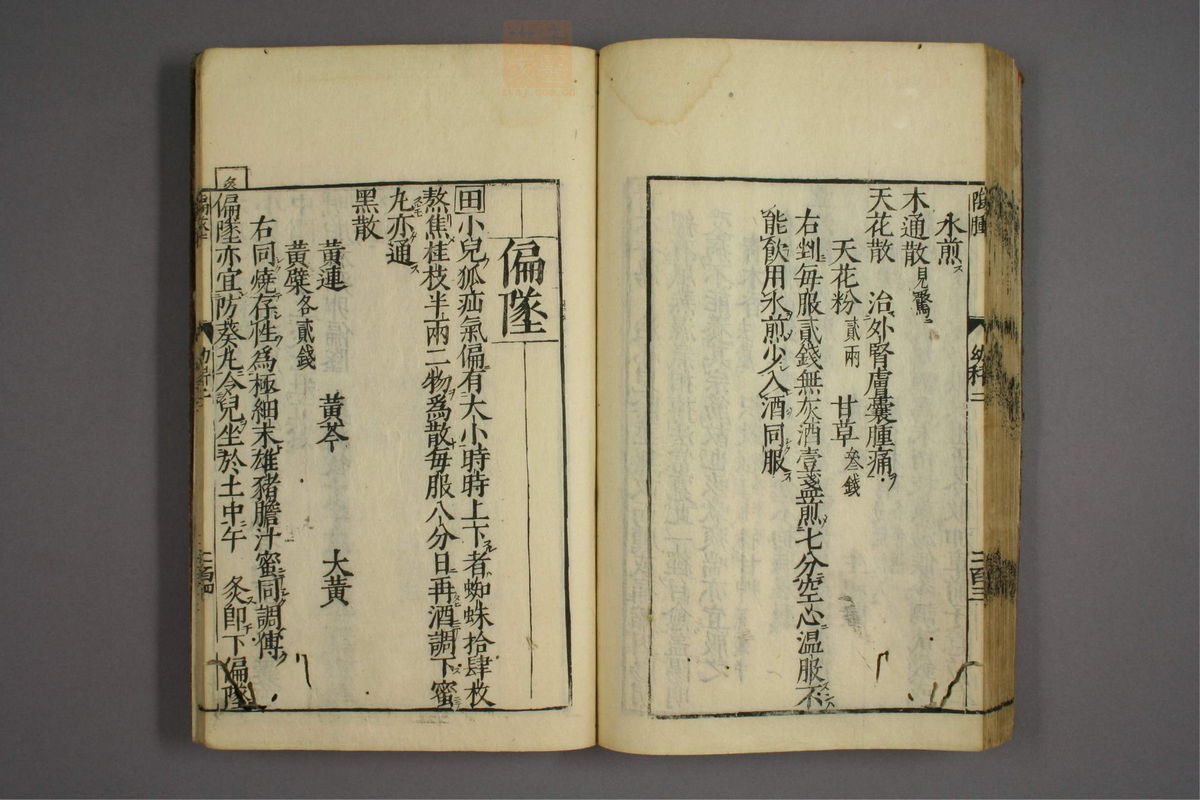 陰腫
幼科二
二百三
水煎ス
木通散見驚ニ
天花散 治外腎膚囊腫痛ヲ
天花粉貳兩 甘草叄錢
右剉每服貳錢無灰酒壹盞煎七分空心温服不
能飲用水煎少入酒同服
偏墜
田小兒狐疝氣偏有大小時時上下者蜘蛛拾肆枚
熬焦桂枝半兩二物爲散每服八分日再酒調下蜜
丸亦通
黑散
黃連 黃芩 大黃
黃蘗各貳錢
右同燒存性爲極細末雄猪膽汁蜜同調傅
偏墜亦宜防葵丸令兒坐於土中午 灸卽下偏墜
偏墜
二百四